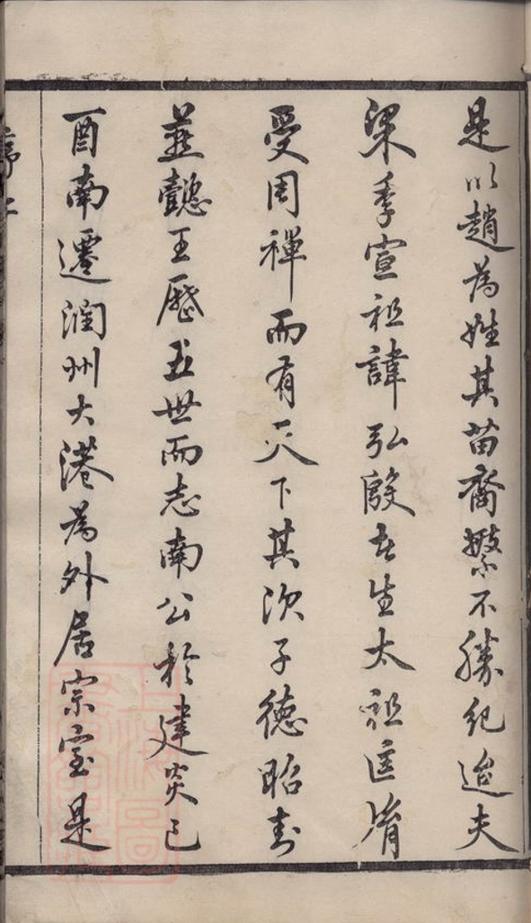 是以趙為姓其苗裔繁不勝紀迨夫
梁季宣祖諱弘殷者生太祖匡胤
受周禪而有天下其次子德昭封
燕懿王歷五世而志南公於建炎己
酉南遷潤州大港為外居宗室是
序上